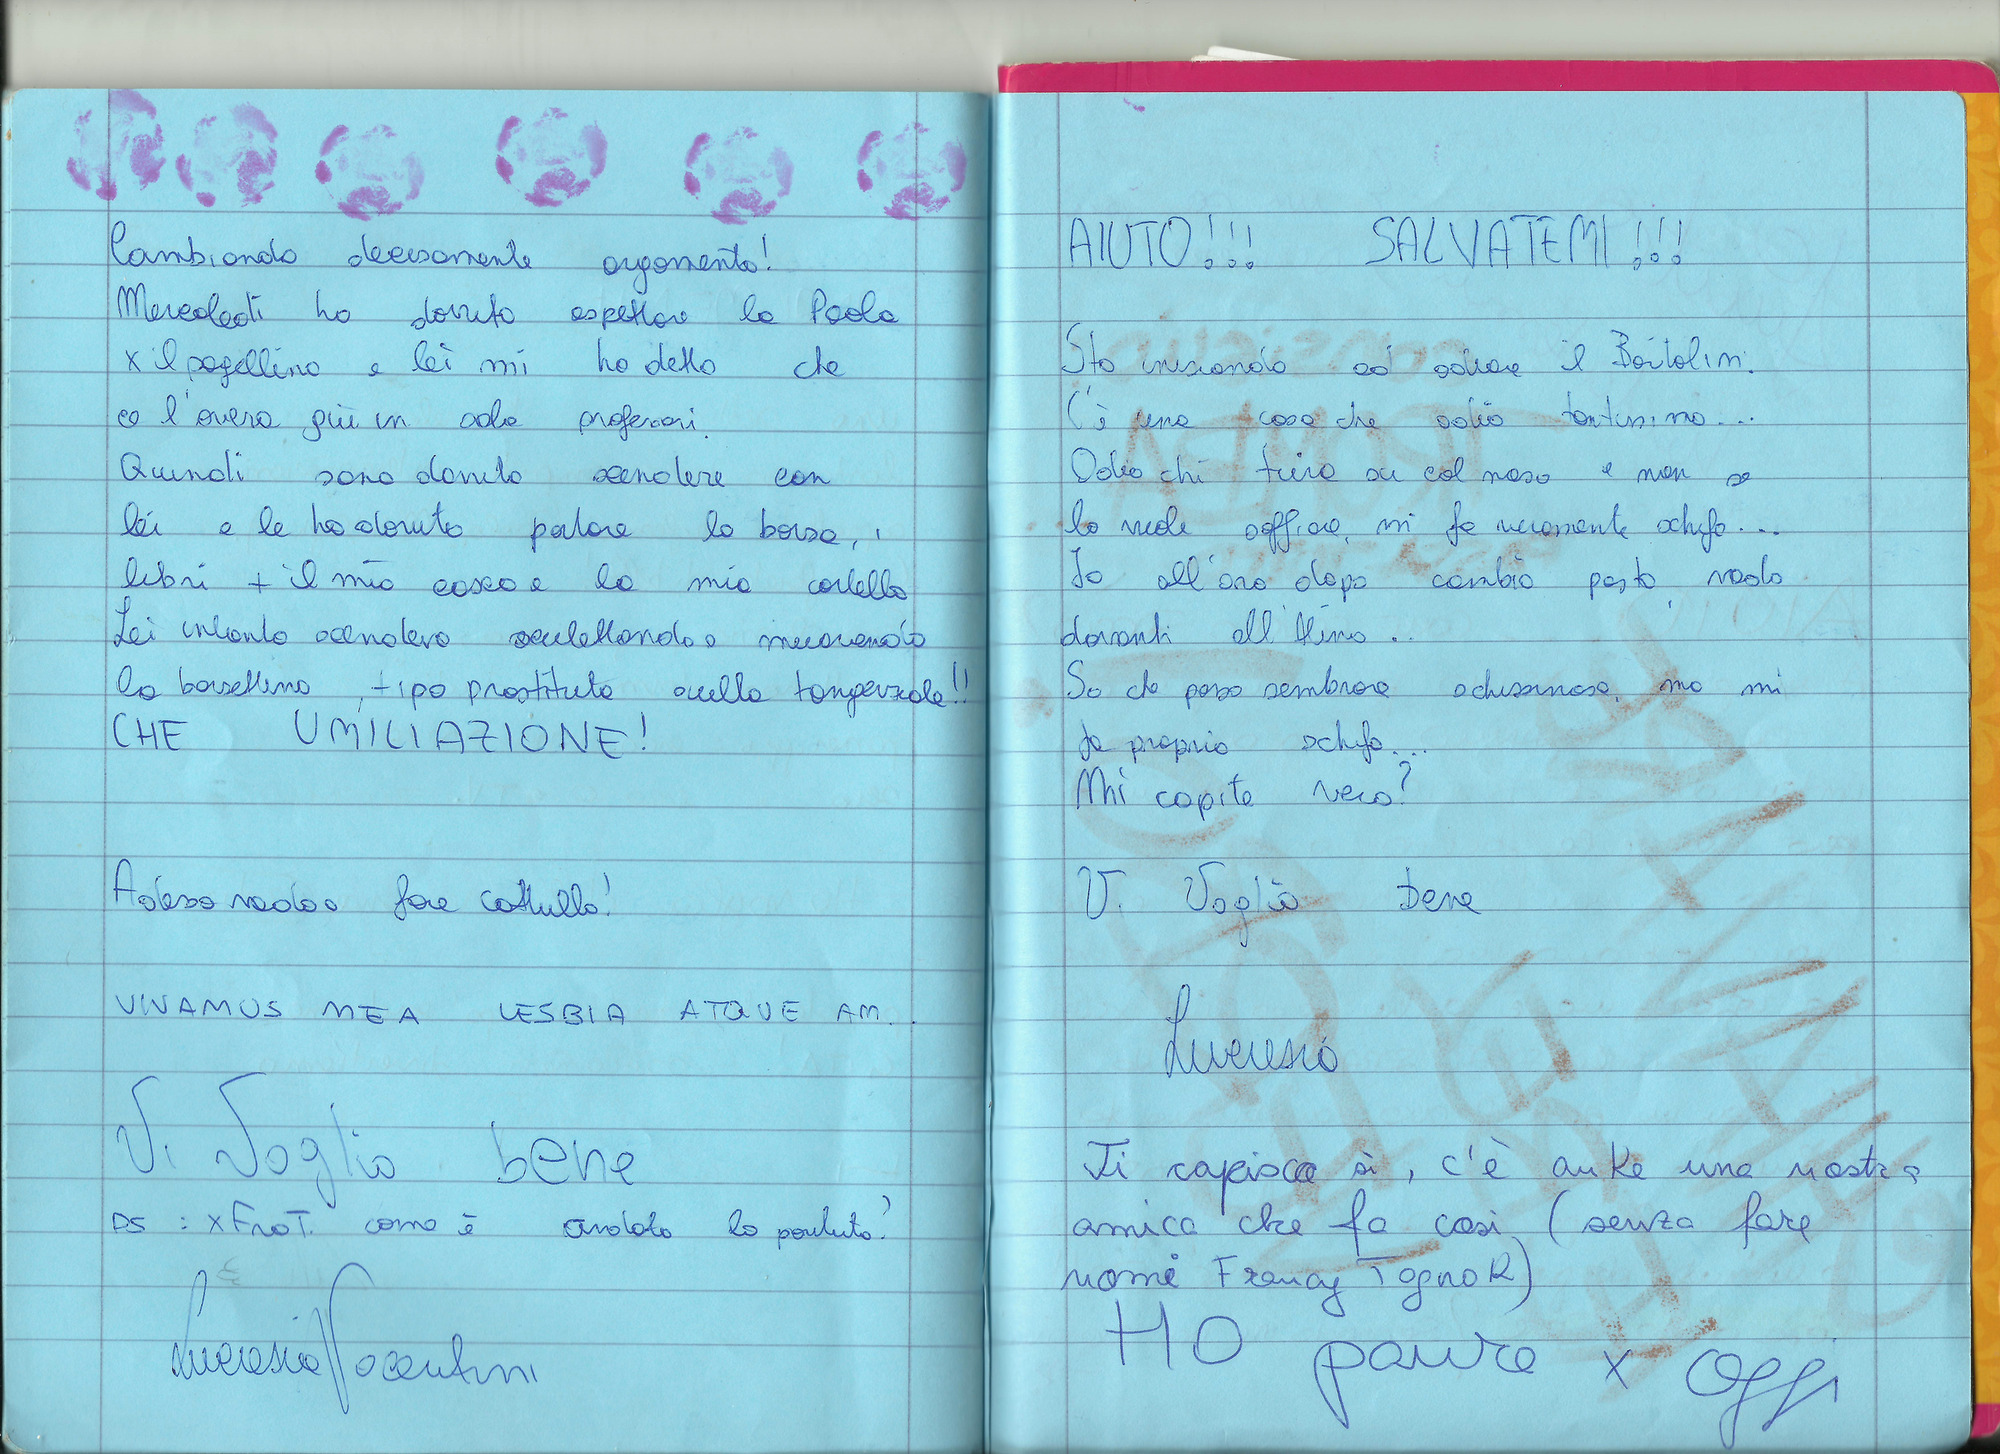 Cambiando decisamente argomento!
Mercoledì ho dovuto aspettare la Paola
x il pagellino e lei mi ha detto che
ce l'aveva giù in aula professori.
Quindi sono dovuta scendere con
lei e le ho dovuto portare la borsa, i
libri + il mio casco e la mia cartella
Lei intanto scendeva sculettando e muovendo
la borsettina, tipo prostituta sulla tangenziale!!
CHE UMILIAZIONE!
Adesso vado a fare Catullo!
VIVAMUS MEA LESBIA ATQUE AM..
Vi Voglio bene
PS : x FraT. come è andata la partita?
Lucrezia Nocentini
AIUTO!!! SALVATEMI!!!
Sto iniziando ad odiare il Bortolini.
C'è una cosa che odio tantissimo...
Odio chi tira su col naso e non se
lo vuole soffiare, mi fa veramente schifo...
Io all'ora dopo cambio posto, vado
davanti all'
So che posso sembrare schizzinosa, ma mi
fa proprio schifo...
Mi capite vero?
V. Voglio bene
Lucrezia
Ti capisco sì, c'è anke una nostra
amica che fa così (senza fare
nomi Francy TognoR)
HO paura x oggi